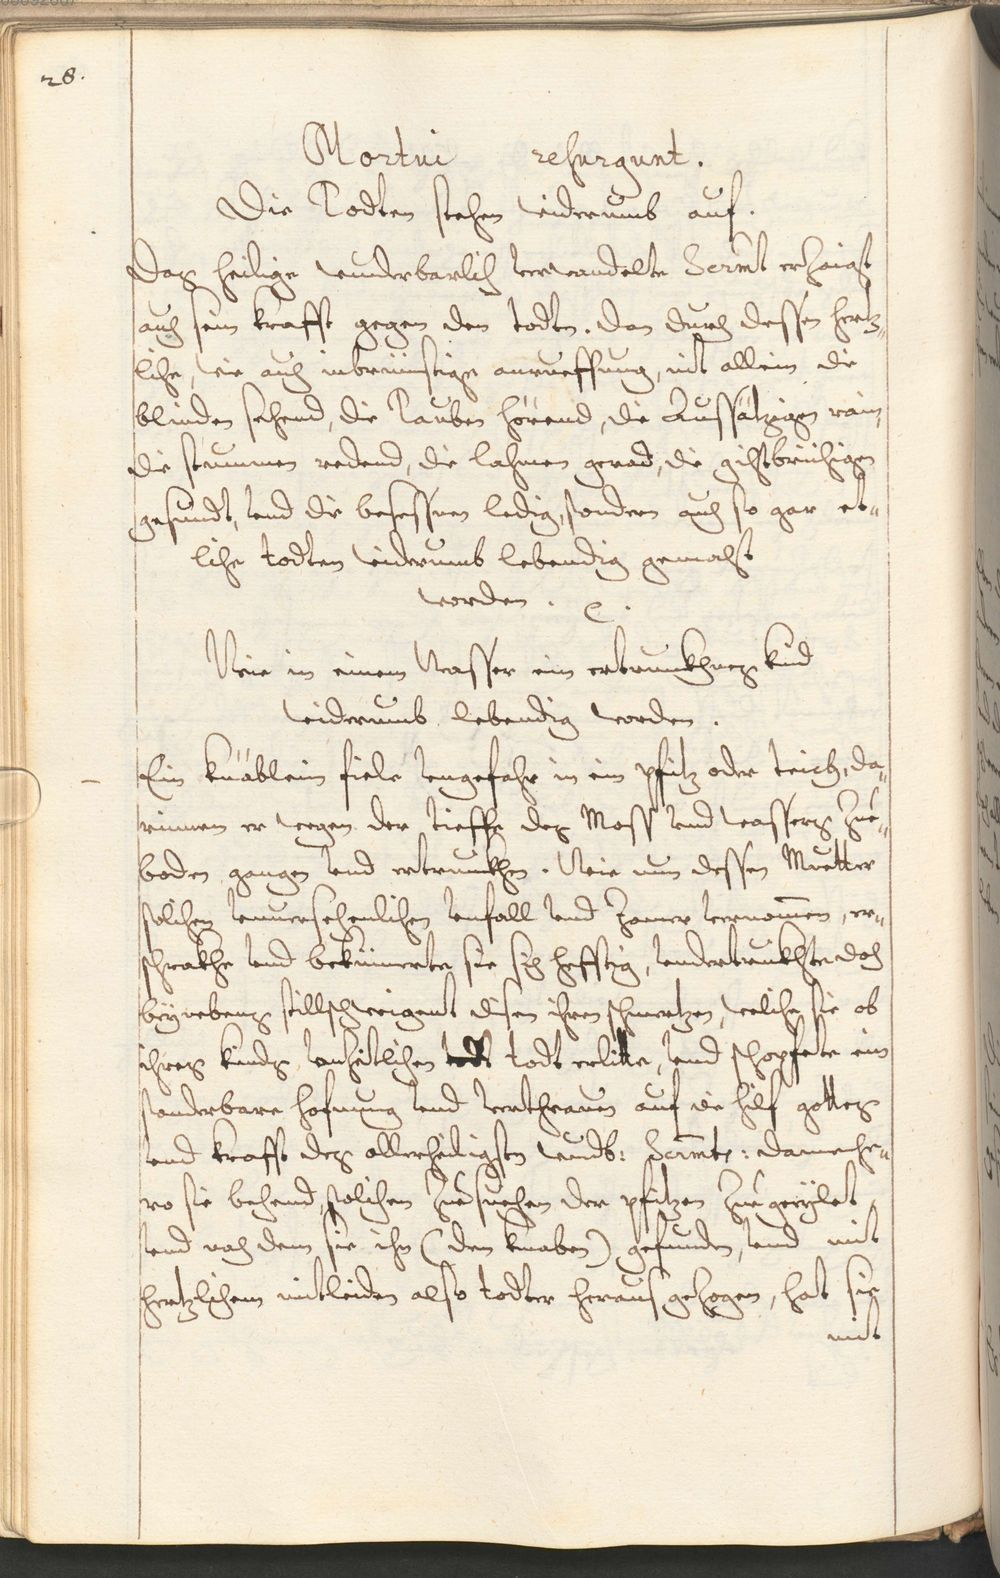 28.
Mortui resurgunt.
Die Todten stehen widerumb auf.
Daß heilige wunderbarlich verwandelte Sacrmt erzaigt
auch sein krafft gegen den todten. Dan durch dessen hertz-
liche, wie auch inbrünstige anrueffung, nit allein die
blinden sehend, die Tauben hörend, die Aussätzigen rain,
die stummen redend, die lahmen gerad, die gichtbrüchigen
gesundt, vnd die besessnen ledig, sondern auch so gar et-
liche todten widerumb lebendig gemacht
worden.
Wie in einem Wasser ein ertrunckhnes kind
widerumb lebendig worden.
Ein knäblein fiele vngefahr in ein pfitz oder teich, da-
rinnen er wegen der tieffe deß Moss vnd wassers zue-
boden gangen vnd ertrunckhen. Wie nun dessen Muetter
solichen vnuersehenlichen vnfall vnd Jamer vernomen, er-
schrakhe vnd bekümerte sie sich hefftig, vndertruckhte doch
beynebens stillschweigent disen ihren schmertzen, welche sie ob
ihres kinds vnzeitlichen todt erlitte, vnd schopfete ein
sonderbare hofnung vnd verthrauen auf die hilf gottes
vnd krafft deß allerheiligsten wundb: Sacrmts: dannenhe-
ro sie behend, solichen zuesuechen der pfitzen zuegeeylet,
vnd nach dem sie ihn (den knaben) gefunden, vnd mit
hertzlichem mitleiden also todter heraus gezogen, hat sie
mit